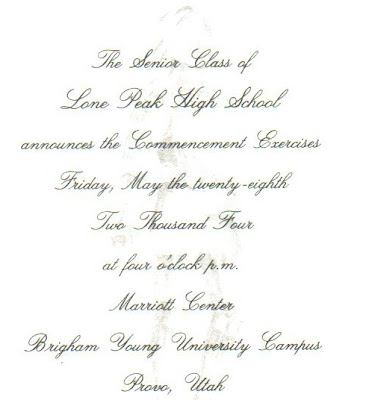 The Senior Class of
Lone Peak High School
announces the Commencement Exercises
Friday, May the twenty-eighth
Two Thousand Four
at four o'clock p.m.
Marriott Center
Brigham Young University Campus
Provo, Utah